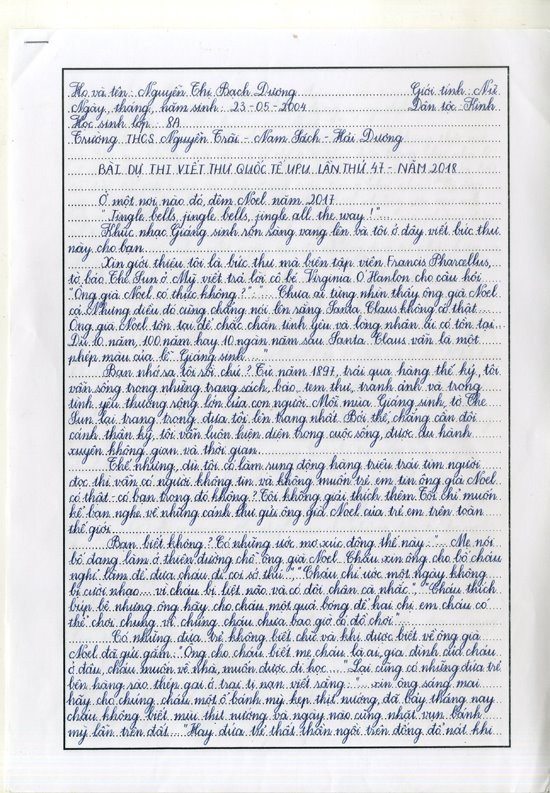 Họ và tên: Nguyễn Thị Bạch Dương Giới tính: Nữ
Ngày, tháng, năm sinh: 23-05-2004 Dân tộc: Kinh
Học sinh lớp: 8A
Trường THCS Nguyễn Trãi - Nam Sách - Hải Dương
BÀI DỰ THI VIẾT THƯ QUỐC TẾ UPU LẦN THỨ 47 - NĂM 2018
Ở một nơi nào đó, đêm Noel năm 2017
"Jingle bells, jingle bells, jingle all the way!"...
Khúc nhạc Giáng sinh rộn ràng vang lên và tôi ở đây viết bức thư
này cho bạn.
Xin giới thiệu tôi là bức thư mà biên tập viên Francis Pharcellus,
tờ báo The Sun ở Mỹ viết trả lời cô bé Virginia O'Hanlon cho câu hỏi
"Ông già Noel có thực không?": "... Chưa ai từng nhìn thấy ông già Noel
cả. Nhưng điều đó cũng chẳng nói lên rằng Santa Claus không có thật...
Ông già Noel tồn tại để chắc chắn tình yêu và lòng nhân ái có tồn tại.
Dù 10 năm, 100 năm hay 10 ngàn năm sau Santa Claus vẫn là một
phép màu của lễ Giáng sinh..."
Bạn nhớ ra tôi rồi chứ? Từ năm 1897, trải qua hàng thế kỷ, tôi
vẫn sống trong những trang sách, báo, tem thư, tranh ảnh và trong
tình yêu thương rộng lớn của con người. Mỗi mùa Giáng sinh, tờ The
Sun lại trang trọng đưa tôi lên trang nhất. Bởi thế, chẳng cần đôi
cánh thần kỳ, tôi vẫn luôn hiện diện trong cuộc sống, được du hành
xuyên không gian và thời gian.
Thế nhưng, dù tôi có làm rung động hàng triệu trái tim người
đọc thì vẫn có người không tin và không muốn trẻ em tin ông già Noel
có thật - có bạn trong đó không? Tôi không giải thích thêm. Tôi chỉ muốn
kể bạn nghe về những cánh thư gửi ông già Noel của trẻ em trên toàn
thế giới.
Bạn biết không? Có những ước mơ xúc động thế này: "... Mẹ nói
bố đang làm ở thiên đường chế ông già Noel. Cháu xin ông cho bố cháu
nghỉ làm để đưa cháu đi coi sở thú...", "Cháu chỉ ước một ngày không
bị cười nhạo... vì cháu bị liệt não và có đôi chân cà nhắc", "Cháu thích
búp bê nhưng ông hãy cho cháu một quả bóng để hai chị em cháu có
thể chơi chung vì chúng cháu chưa bao giờ có đồ chơi"...
Có những đứa trẻ không biết chữ và khi được biết về ông già
Noel đã gửi gắm: "Ông cho cháu biết mẹ cháu là ai, gia đình của cháu
ở đâu, cháu muốn về nhà, muốn được đi học...". Lại cũng có những đứa trẻ
bên hàng rào thép gai ở trại tị nạn viết rằng: "... xin ông sáng mai
hãy cho chúng cháu một ổ bánh mỳ kẹp thịt nướng, đã bảy tháng nay
cháu không biết mùi thịt nướng và ngày nào cũng nhặt vụn bánh
mỳ lẫn trên đất...". Hay đứa trẻ thất thần ngồi trên đống đổ nát khi